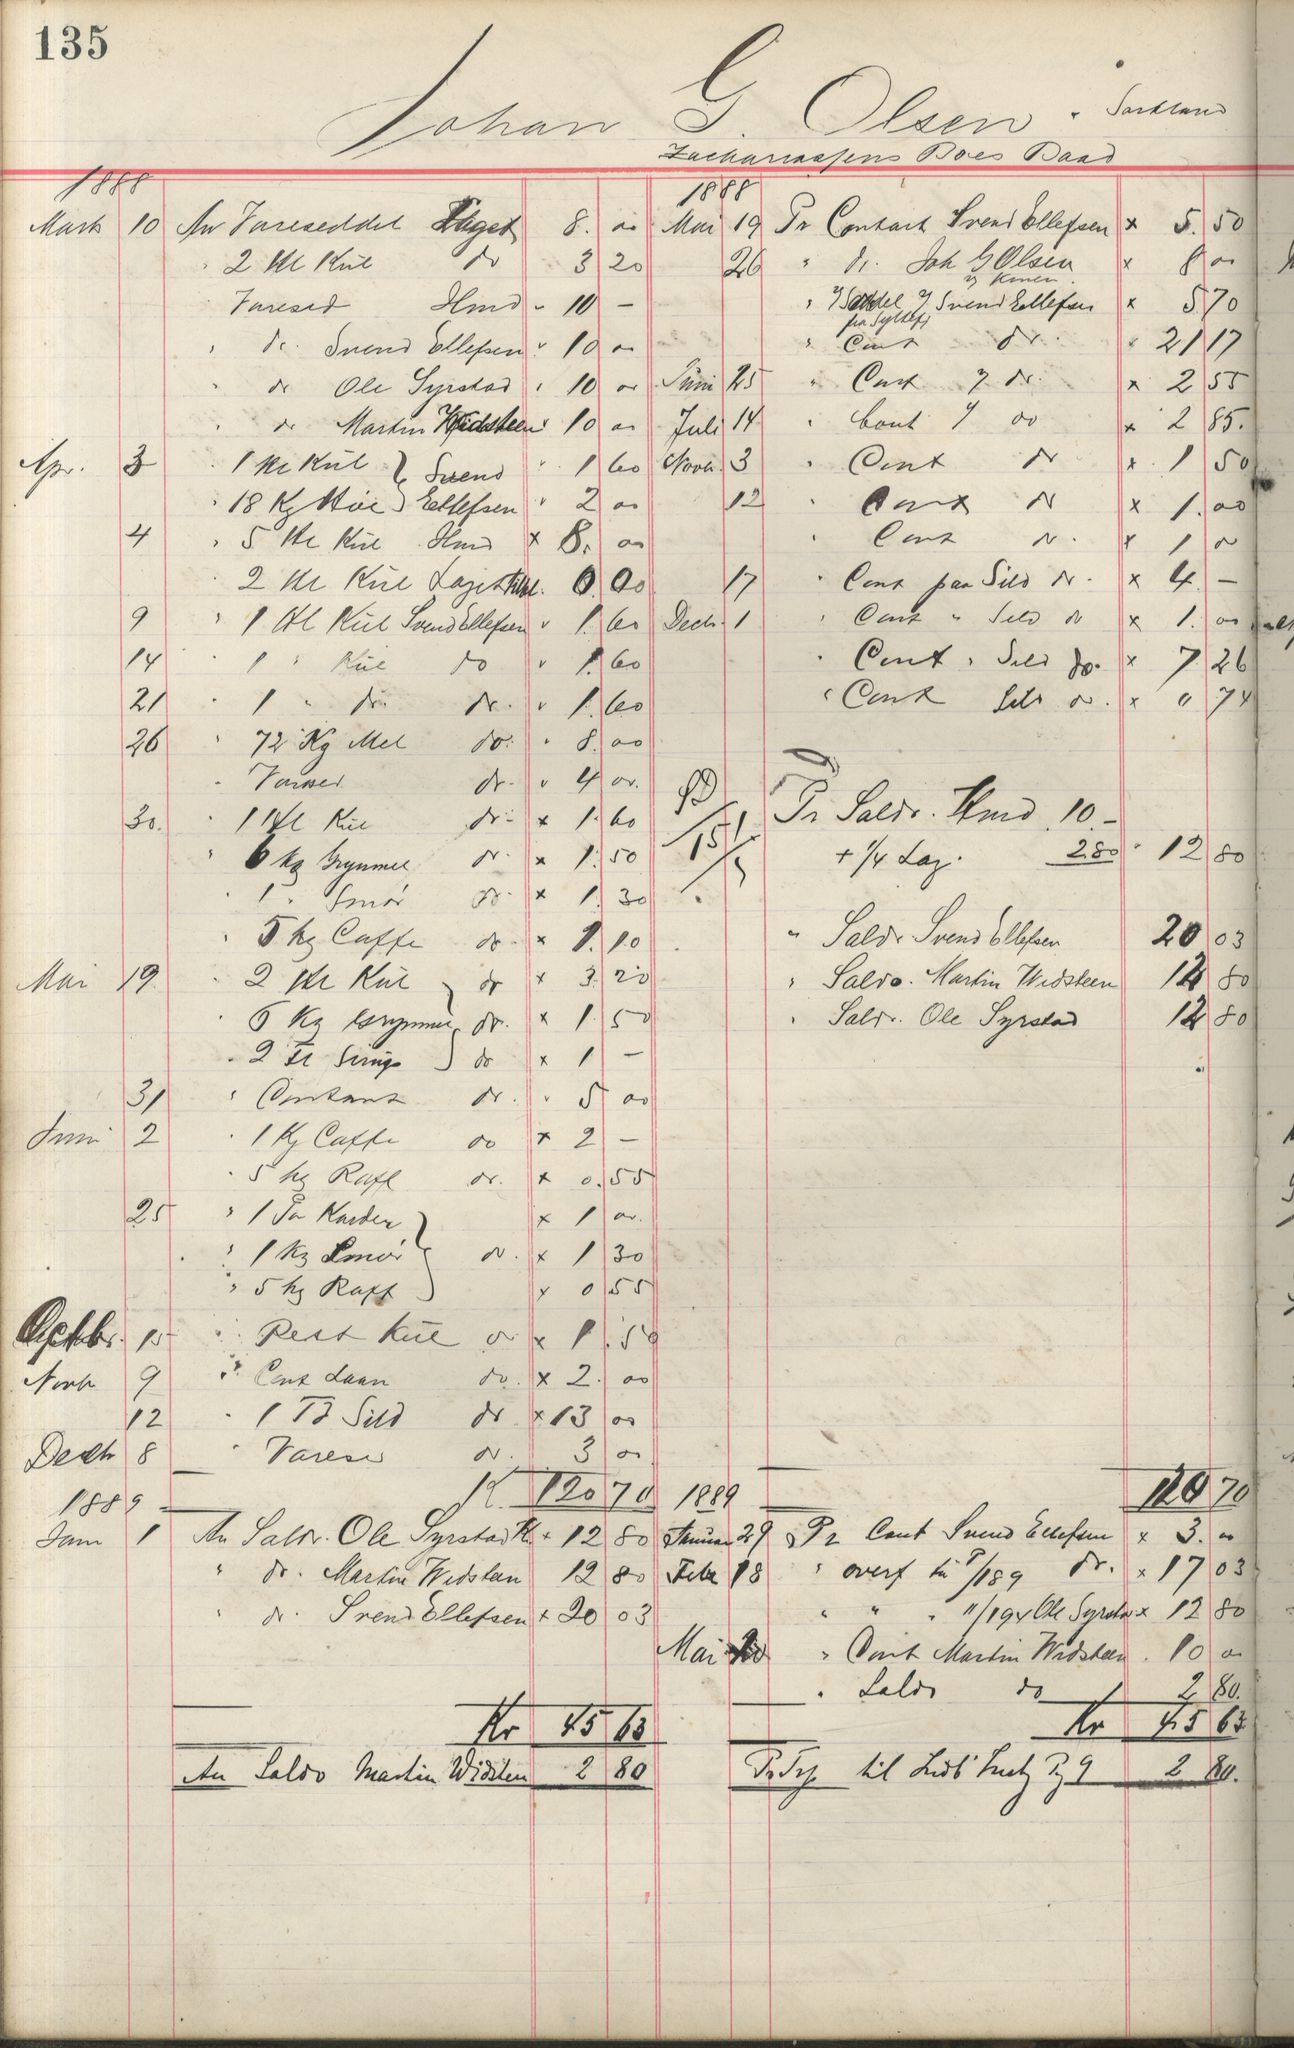 135
Johan G. Olsen
Boes Baad
1888
Marts 10 An Vareseddel Laget 8. 00
" 2 Hl Kul do 3 20
Varesed Hmd " 10 –
" do. Svend Ellefsen " 10 00
" do Ole Syrstad " 10 00
" do Martin Widsteen " 10 00
Apr. 3 " 1 Hl Kul } Svend " 1 60
" 18 Kg Höe } Ellefsen " 2 00
4 " 5 Hl Kul Hmd x 8. 00
2 Hl Kul Laget 0 00
9 " 1 Hl Kul Svend Ellefsen " 1. 60
14 " 1 " Kul do " 1. 60
21 " 1 " do. do. " 1. 60
26 " 72 Kg Mel do. " 8. 00
" Varesed do. " 4 00
30. " 1 Hl Kul do. x 1. 60
" 6 kg Grynmel do. x 1. 50
" 1 " Smör do. x 1. 30
" 5 kg Caffe do. x 1. 10
Mai 19 " 2 Hl Kul } do x 3. 20
" 6 Kg Grynmel } do. x 1. 50
" 2 Fl Sirup } do x 1 –
31 " Contant do. " 5 00
Juni 2 " 1 Kg Caffe do x 2 –
" 5 kg Rafl do. x 0. 55
25 " 1 Par Karder } x 1 00
" 1 Kg Smör } do. x 1 30
" 5 kg Rafl } x 0 55
Octbr. 15 " Rest Kul do x 1. 50
Novb 9 " Cont Laan do. x 2. 00
12 " 1 Td Sild do x 13 00
Decb 8 " Varesed do. 3 00
K. 120 70
1889
Jan 1 An Saldo. Ole Syrstad Kr x 12 80
" do. Martin Widsteen 12 80
" do. Svend Ellefsen x 20 03
Kr 45 63
An Saldo Martin Widsten 2 80
1888
Mai 19 Pr Contant Svend Ellefsen x 5. 50
26 " do. Joh G Olsen x 8 00
v/ Konen
" Seddel v/ Svend Ellefsen x 5 70
" Cont do. " 21 17
Juni 25 " Cont v/ do. x 2 55
Juli 14 " Cont v/ do x 2 85.
Novb. 3 " Cont do x 1 50
12 " Cont do x 1. 00
" Cont do. x 1 00
17 " Cont paa Sild do. x 4. –
Decb. 1 " Cont " Sild do x 1. 00
" Cont " Sild do. x 7 26
" Cont Sild do. x " 74
Pr Saldo. Hmd 10 –
+ 1/4 Lag. 2.80 " 12 80
" Saldo Svend Ellefsen 20 03
" Saldo. Martin Widsteen 12 80
" Saldo. Ole Syrstad 12 80
120 70
1889
Januar 29 Pr Cont Svend Ellefsen x 3. 00
Febr 18 " overf til P/189 do. x 17 03
" " " "/194 Ole Syrstad x 12 80
Mai 20 " Cont Martin Widsteen. 10 00
" Saldo do 2 80.
Kr 45 63
2 80.